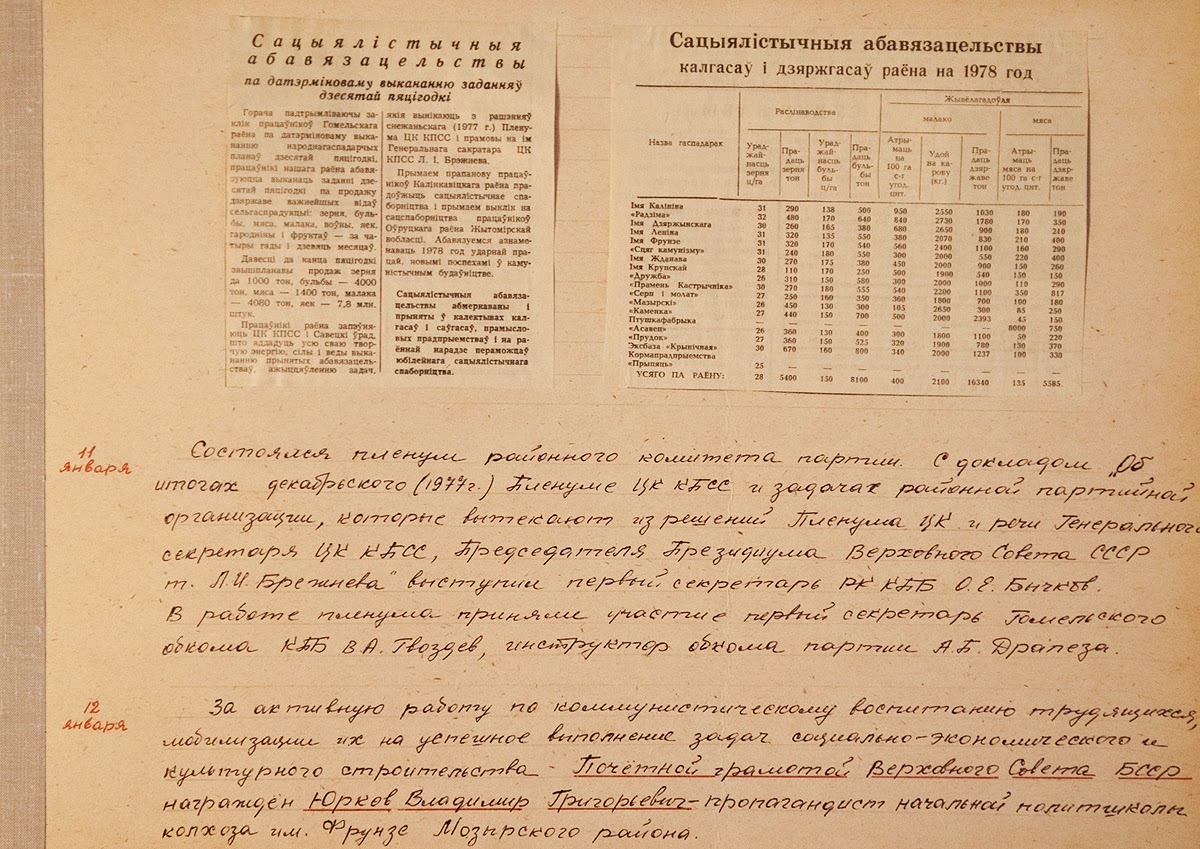 Сацыялістычныя
абавязацельствы
па датэрміноваму выкананню заданняў
дзесятай пяцігодкі
Горача падтрымліваючы за-
клік працаўнікоў Гомельскага
раёна па датэрміноваму выка-
нанню народнагаспадарчых
планаў дзесятай пяцігодкі,
працаўнікі нашага раёна абавя-
зуюцца выканаць заданні дзе-
сятай пяцігодкі па продажу
дзяржаве важнейшых відаў
сельгаспрадукцыі: зерня, буль-
бы, мяса, малака, воўны, яек,
гародніны і фруктаў — за ча-
тыры гады і дзевяць месяцаў.
Давесці да канца пяцігодкі
звышпланавы продаж зерня
да 1000 тон, бульбы — 4000
тон, мяса — 1400 тон, малака
— 4080 тон, яек — 7,8 млн.
штук.
Працаўнікі раёна запэўня-
юць ЦК КПСС і Савецкі ўрад,
што аддадуць усю сваю твор-
чую энергію, сілы і веды выка-
нанню прынятых абавязацель-
стваў, ажыццяўленню задач,
якія вынікаюць з рашэнняў
снежаньскага (1977 г.) Плену-
ма ЦК КПСС і прамовы на ім
Генеральнага сакратара ЦК
КПСС Л. І. Брэжнева.
Прымаем прапанову працаў-
нікоў Калінкавіцкага раёна пра-
доўжыць сацыялістычнае спа-
борніцтва і прымаем выклік на
сацспаборніцтва працаўнікоў
Оўруцкага раёна Жытомірскай
вобласці. Абавязуемся азнаме-
наваць 1978 год ударнай пра-
цай, новымі поспехамі ў каму-
ністычным будаўніцтве.
Сацыялістычныя абавяза-
цельствы абмеркаваны і
прыняты ў калектывах кал-
гасаў і саўгасаў, прамысло-
вых прадпрыемстваў і на ра-
ённай нарадзе пераможцаў
юбілейнага сацыялістычнага
спаборніцтва.
Сацыялістычныя абавязацельствы
калгасаў і дзяржгасаў раёна на 1978 год
Назва гаспадарак
Раслінаводства
Жывёлагадоўля
малако
мяса
Урад-жай-насць зерня ц/га
Пра-даць зерня тон
Урад-жай-насць буль-бы ц/га
Пра-даць буль-бы тон
Атры-маць на 100 га с-г угод. цнт.
Удой на ка-рову (кг.)
Пра-даць дзяр-жаве тон
Атры-маць мяса на 100 га с-г угод. цнт.
Пра-даць дзяр-жаве тон
Імя Калініна 31 290 138 500 950 2550 1030 180 190
«Радзіма» 32 480 170 640 840 2730 1780 170 350
Імя Дзяржынскага 30 260 165 380 680 2650 900 180 210
Імя Леніна 31 320 135 550 380 2070 830 210 400
Імя Фрунзе 31 320 170 540 560 2400 1100 160 290
«Сцяг камунізму» 31 240 180 550 300 2000 550 220 400
Імя Жданава 30 270 175 380 450 2000 900 150 260
Імя Крупскай 28 110 170 250 500 1900 540 150 150
«Дружба» 26 310 150 580 300 2000 1000 110 290
«Прамень Кастрычніка» 30 270 180 555 540 2200 1100 350 817
«Серп і молат» 27 250 160 350 360 1800 700 100 180
«Мазырскі» 26 450 130 300 105 2650 300 85 250
«Каменка» 27 440 150 700 500 2000 2393 45 150
Птушкафабрыка — — — — — — — 8000 750
«Асавец» 26 360 130 400 300 1800 1100 50 220
«Прудок» 27 360 150 525 320 1900 780 130 370
Эксбаза «Крынічная» 30 670 160 800 340 2000 1237 100 330
Кормапрадпрыемства
«Прыпяць» 25 — — — — — — — —
УСЯГО ПА РАЁНУ: 28 5400 150 8100 400 2100 16340 135 5585
11
января
Состоялся пленум районного комитета партии. С докладом „Об
итогах декабрьского (1977г.) Пленуме ЦК КПСС и задачах районной партийной
организации, которые вытекают из решений Пленума ЦК и речи Генерального
секретаря ЦК КПСС, Председателя Президиума Верховного Совета СССР
т. Л.И. Брежнева" выступил первый секретарь РК КПБ О.Е. Бычков.
В работе пленума приняли участие первый секретарь Гомельского
обкома КПБ В.А. Гвоздев, инструктор обкома партии А.Б. Драпеза.
12
января
За активную работу по коммунистическому воспитанию трудящихся,
мобилизации их на успешное выполнение задач социально-экономического и
культурного строительства - Почётной грамотой Верховного Совета БССР
награждён Юрков Владимир Григорьевич - пропагандист начальной политшколы
колхоза им. Фрунзе Мозырского района.